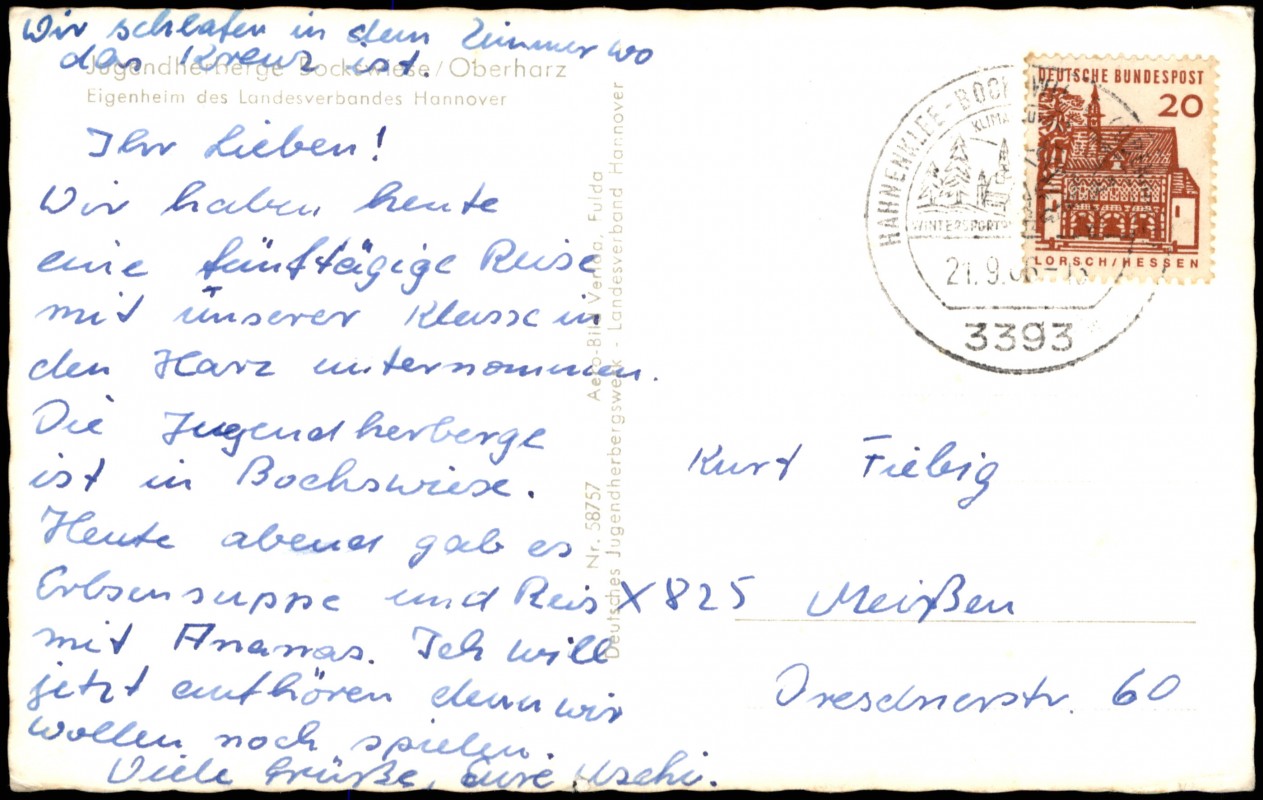 Wir schlafen in dem Zimmer wo
das Kreuz ist.
Jugendherberge Bockswiese/Oberharz
Eigenheim des Landesverbandes Hannover
Ihr Lieben!
Wir haben heute
eine fünftägige Reise
mit unserer Klasse in
den Harz unternommen.
Die Jugendherberge
ist in Bockswiese.
Heute abend gab es
Erbsensuppe und Reis
mit Ananas. Ich will
jetzt aufhören denn wir
wollen noch spielen.
Viele Grüße, Eure Uschi.
Nr. 58757 Aero-Bild Verlag, Fulda
Deutsches Jugendherbergswerk - Landesverband Hannover
HAHNENKLEE-BOCKSWIESE
KLIMA
WINTERSPORT
21.9.
3393
DEUTSCHE BUNDESPOST
20
LORSCH/HESSEN
Kurt Fiebig
X825 Meißen
Dresdnerstr. 60